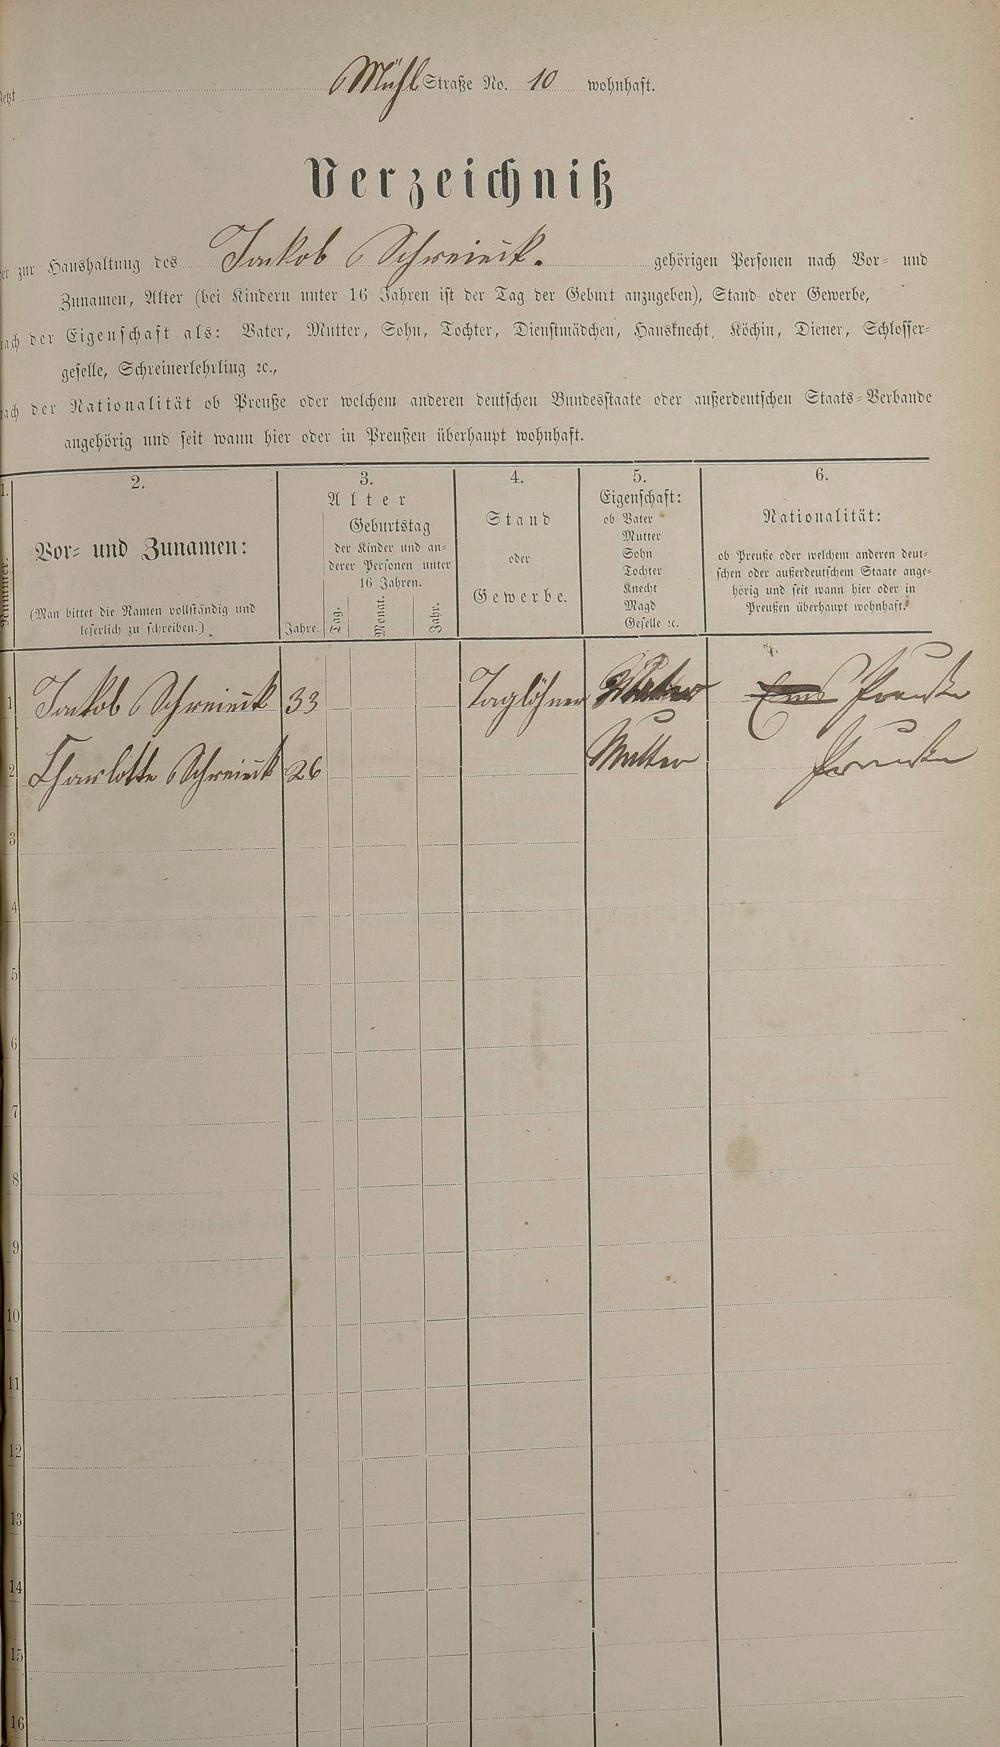 Jetzt Mühl Straße No. 10 wohnhaft.
Verzeichniß
der zur Haushaltung des Jakob Schreieck. gehörigen Personen nach Vor- und
Zunamen, Alter (bei Kindern unter 16 Jahren ist der Tag der Geburt anzugeben), Stand oder Gewerbe,
nach der Eigenschaft als: Vater, Mutter, Sohn, Tochter, Dienstmädchen, Hausknecht, Köchin, Diener, Schlosser-
geselle, Schreinerlehrling ꝛc.,
nach der Nationalität ob Preuße oder welchem anderen deutschen Bundesstaate oder außerdeutschen Staats-Verbande
angehörig und seit wann hier oder in Preußen überhaupt wohnhaft.
1. 2. 3. 4. 5. 6.
Nummer.
Vor- und Zunamen:
(Man bittet die Namen vollständig und
leserlich zu schreiben.)
Alter
Jahre.
Geburtstag
der Kinder und an-
derer Personen unter
16 Jahren.
Tag. Monat. Jahr.
Stand
oder
Gewerbe.
Eigenschaft:
ob Vater
Mutter
Sohn
Tochter
Knecht
Magd
Geselle ꝛc.
Nationalität:
ob Preuße oder welchem anderen deut-
schen oder außerdeutschem Staate ange-
hörig und seit wann hier oder in
Preußen überhaupt wohnhaft.
1 Jakob Schreieck 33 Taglöhner Vater Ems Preuße
2 Charlotte Schreieck 26 Mutter Preuße
3
4
5
6
7
8
9
10
11
12
13
14
15
16